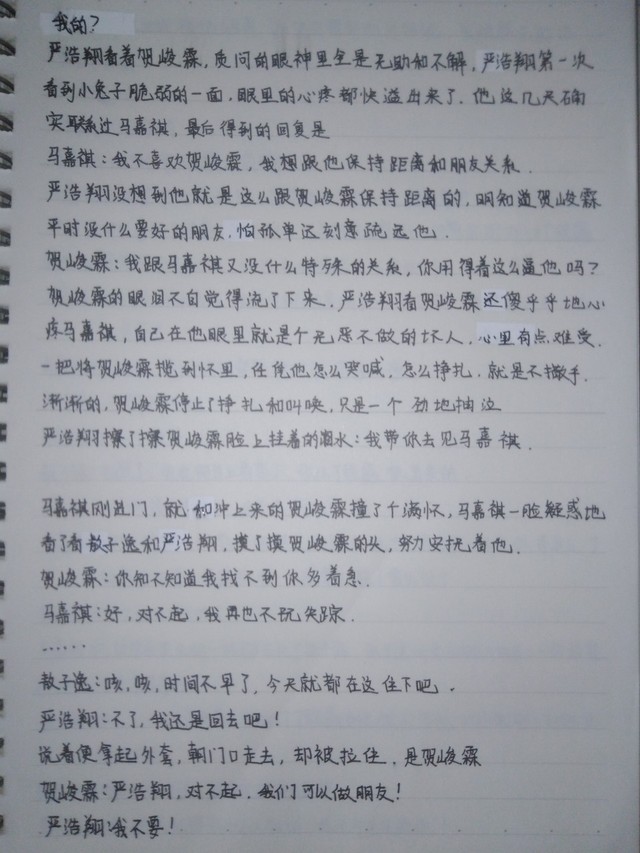 我的？
严浩翔看着贺峻霖，质问的眼神里全是无助和不解，严浩翔第一次
看到小兔子脆弱的一面，眼里的心疼都快溢出来了．他这几天确
实联系过马嘉祺，最后得到的回复是
马嘉祺：我不喜欢贺峻霖，我想跟他保持距离和朋友关系．
严浩翔没想到他就是这么跟贺峻霖保持距离的，明知道贺峻霖
平时没什么要好的朋友，怕孤单还刻意疏远他．
贺峻霖：我跟马嘉祺又没什么特殊的关系，你用得着这么逼他吗？
贺峻霖的眼泪不自觉得流了下来．严浩翔看贺峻霖还傻乎乎地心
疼马嘉祺，自己在他眼里就是个无恶不做的坏人，心里有点难受．
一把将贺峻霖揽到怀里，任凭他怎么哭喊，怎么挣扎．就是不撒手．
渐渐的，贺峻霖停止了挣扎和叫唤，只是一个劲地抽泣
严浩翔擦了擦贺峻霖脸上挂着的泪水：我带你去见马嘉祺．
马嘉祺刚进门，就和冲上来的贺峻霖撞了个满怀，马嘉祺一脸疑惑地
看了看敖子逸和严浩翔，摸了摸贺峻霖的头，努力安抚着他．
贺峻霖：你知不知道我找不到你多着急．
马嘉祺：好，对不起，我再也不玩失踪．
······
敖子逸：咳，咳，时间不早了，今天就都在这住下吧．
严浩翔：不了，我还是回去吧！
说着便拿起外套，朝门口走去，却被拉住，是贺峻霖
贺峻霖：严浩翔，对不起．我们可以做朋友！
严浩翔：我不要！